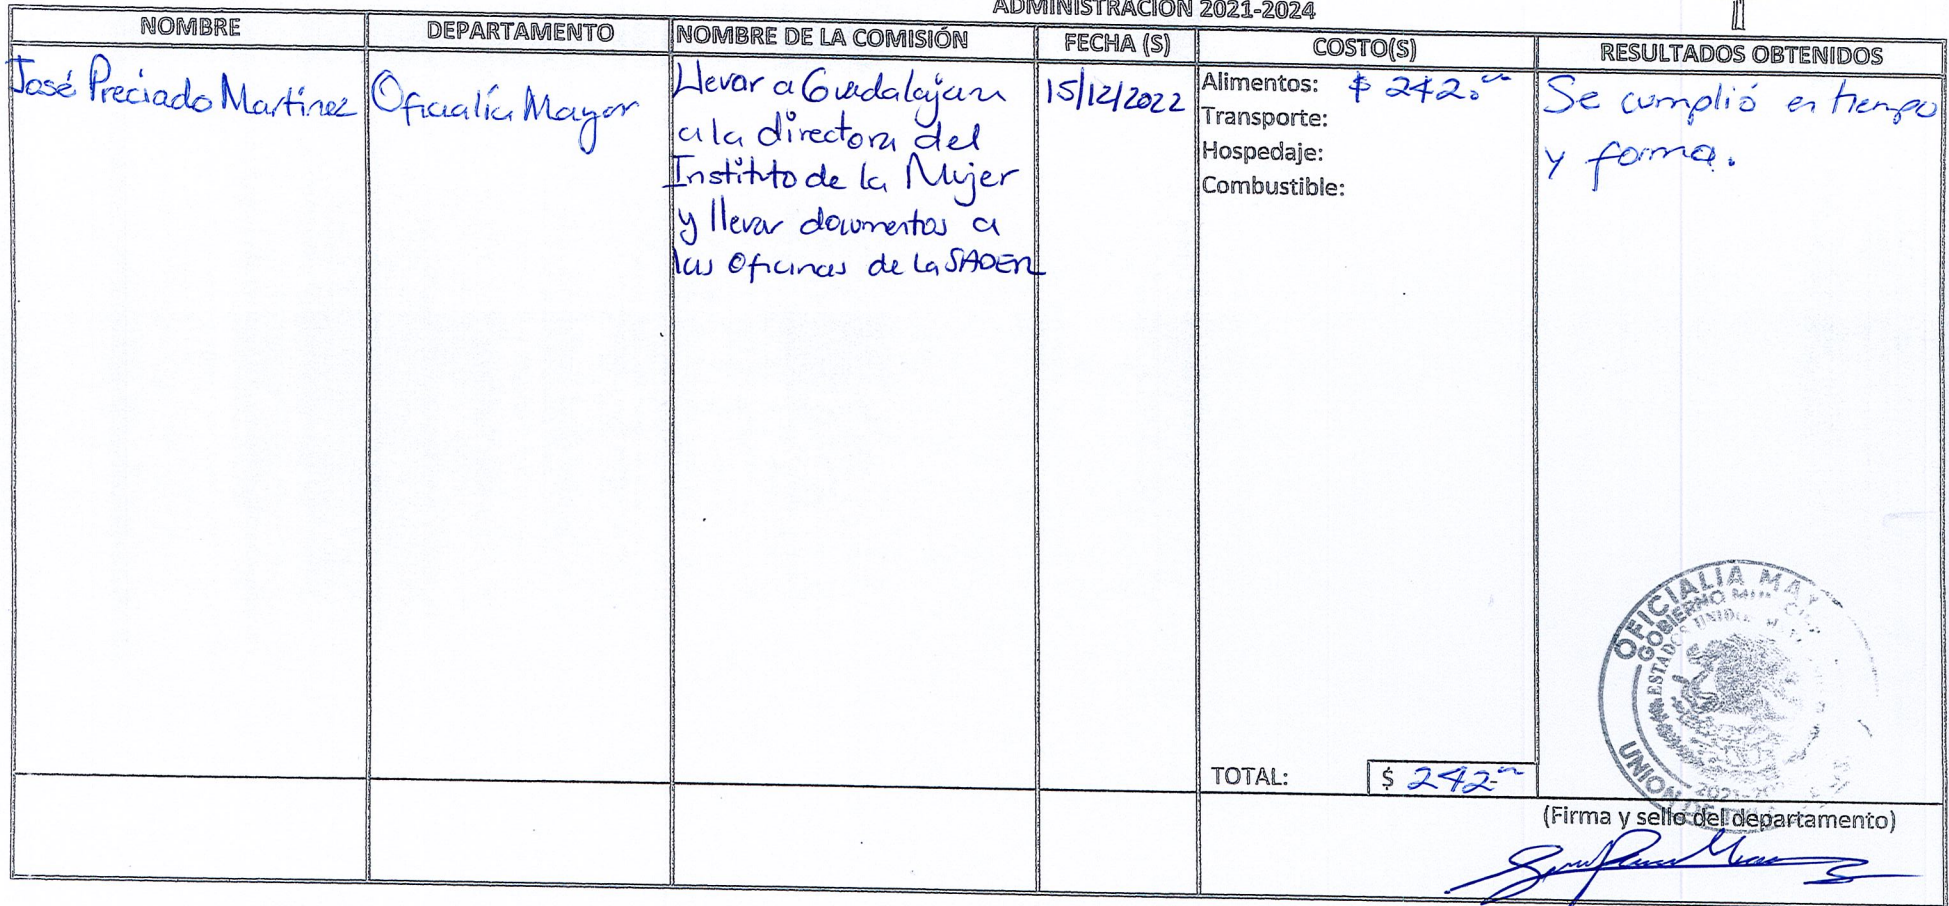 ADMINISTRACIÓN 2021-2024
NOMBRE
DEPARTAMENTO
NOMBRE DE LA COMISIÓN
FECHA (S)
COSTO(S)
RESULTADOS OBTENIDOS
José Preciado Martínez
Oficialía Mayor
Llevar a Guadalajara
a la directora del
Instituto de la Mujer
y llevar documentos a
las Oficinas de la SADER
15/12/2022
Alimentos: $ 242.00
Transporte:
Hospedaje:
Combustible:
Se cumplió en tiempo
y forma.
TOTAL: $ 242.00
OFICIALIA MAY
GOBIERNO
ESTADOS UNIDO
UNION DE
(Firma y sello del departamento)